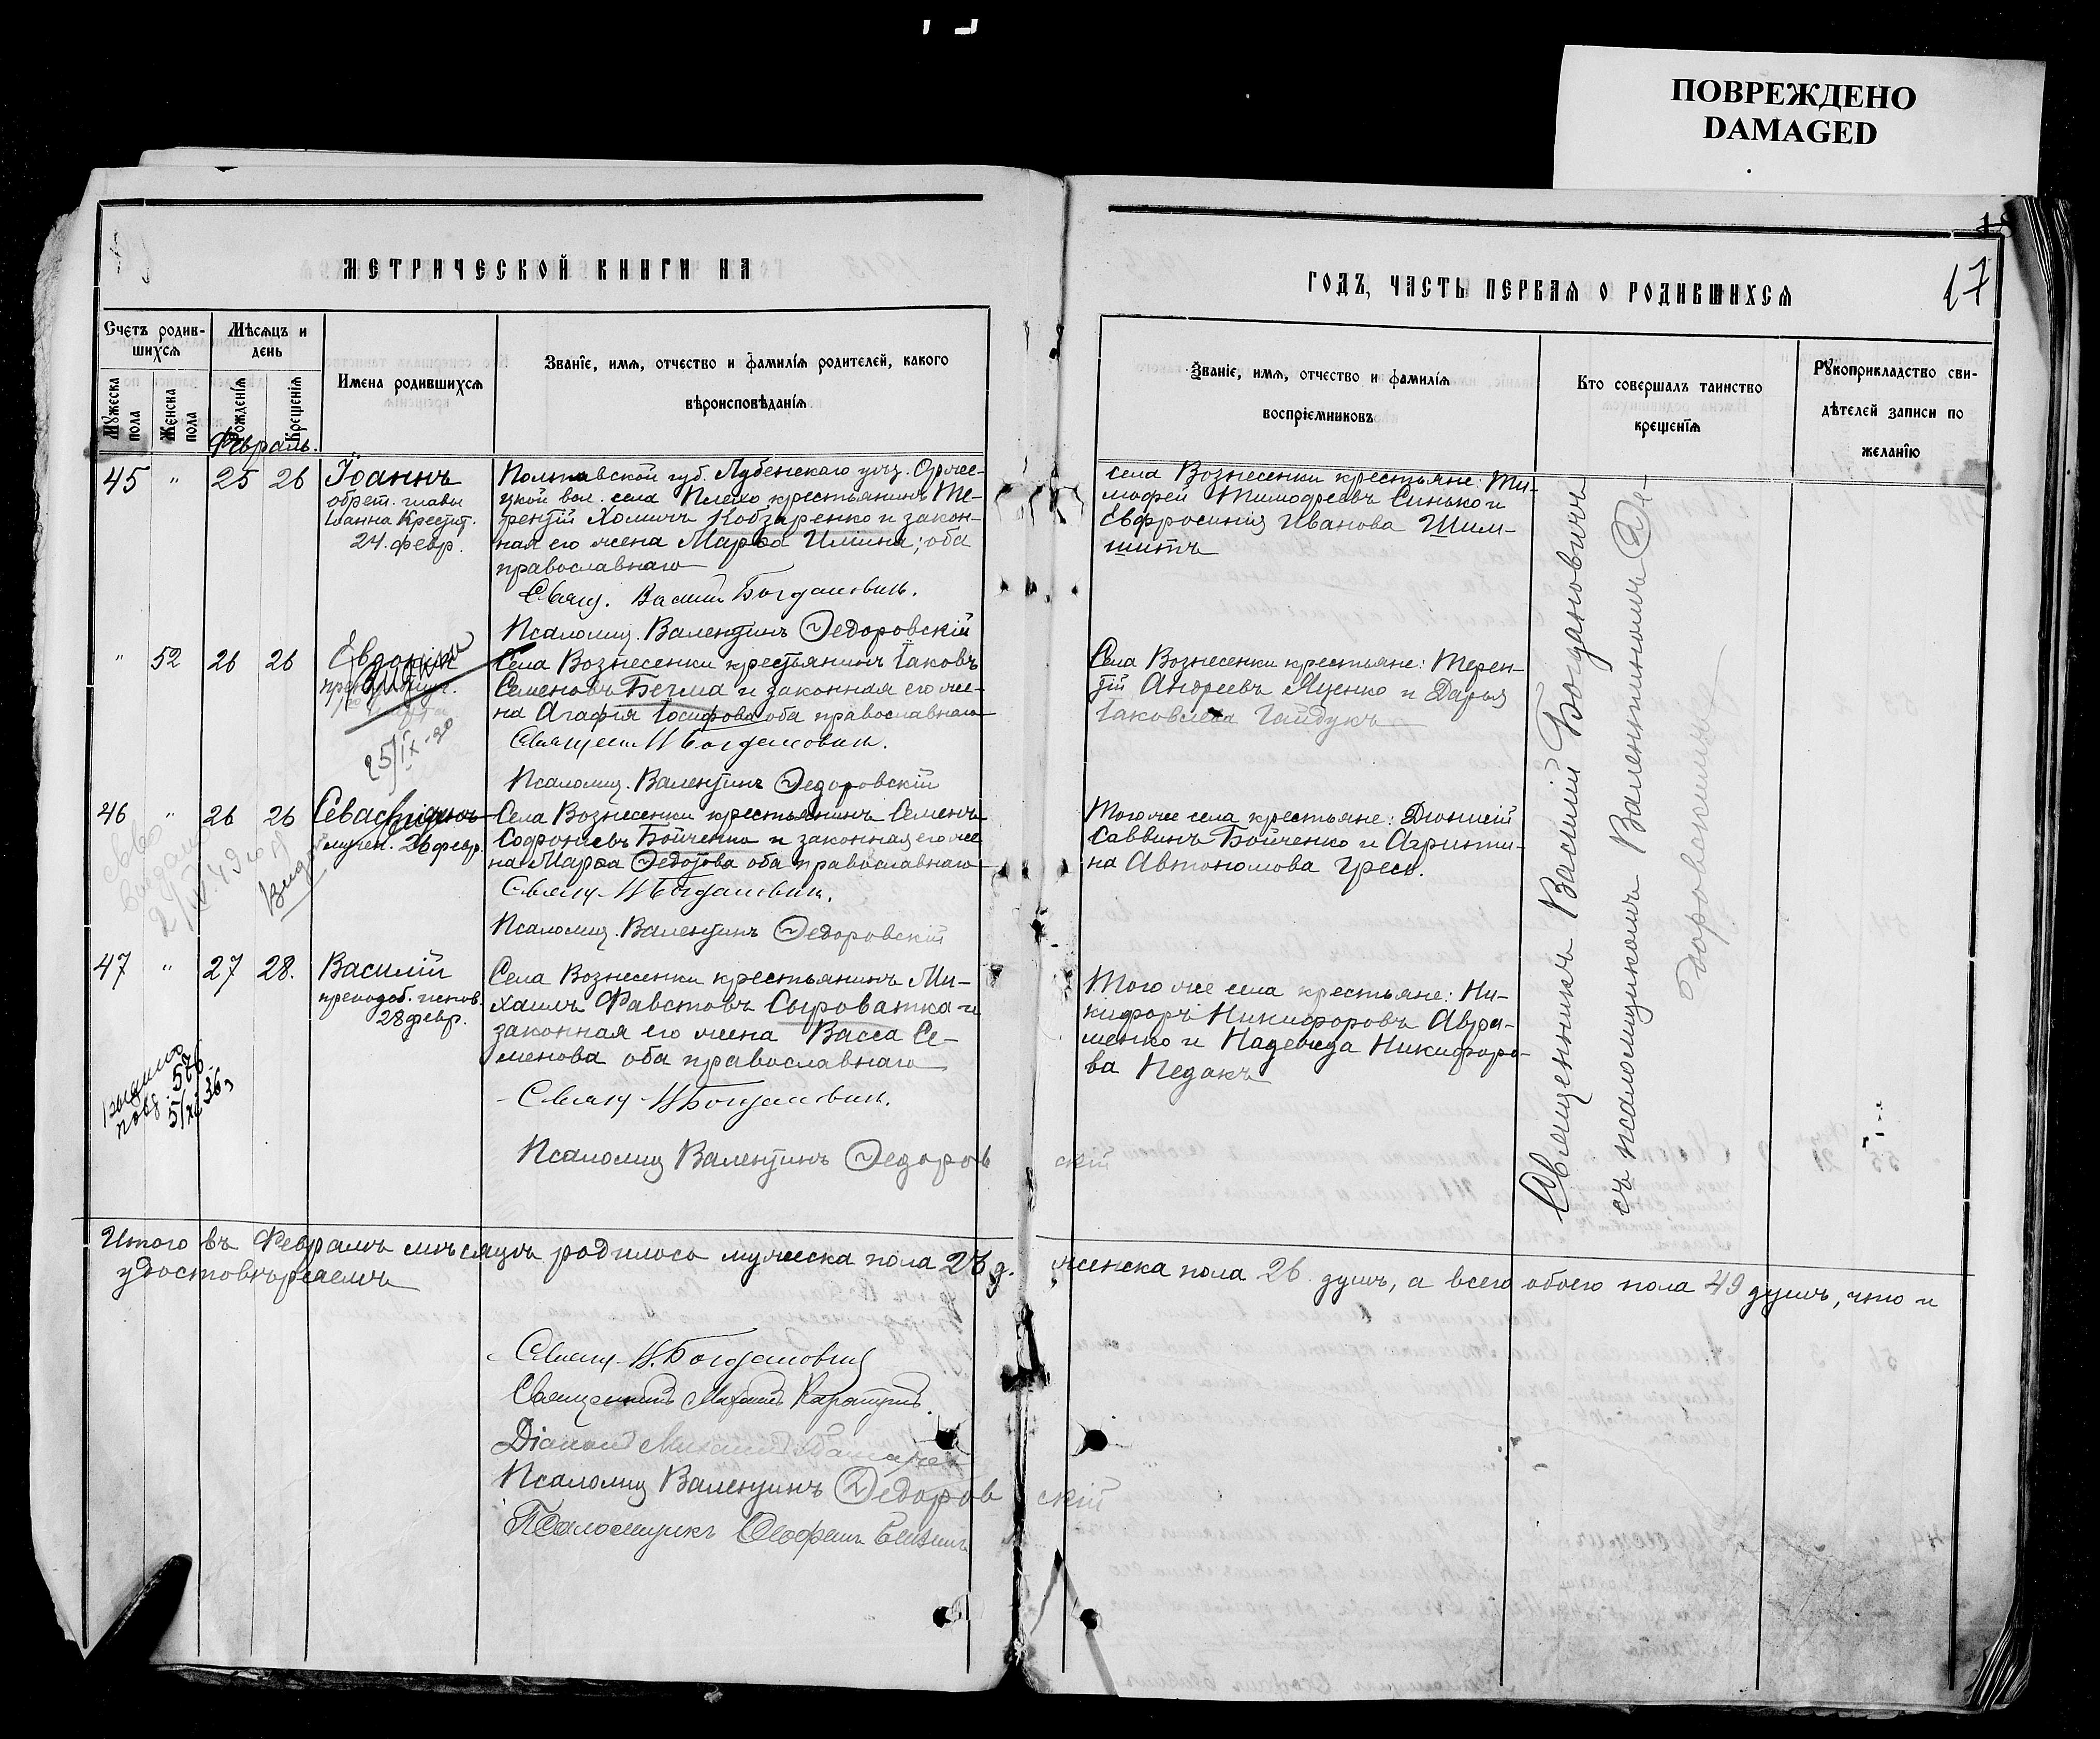 ПОВРЕЖДЕНО
DAMAGED
18
17
МЕТРИЧЕСКОЙ КНИГИ НА
Счетъ родив-
шихся
Мѣсяцъ и
день
Имена родившихся
Званіе, имя, отчество и фамилія родителей, какого
вѣроисповѣданія
Мужеска пола
Женска пола
Рожденія
Крещенія
Февраль.
45 " 25 26
Іоаннъ
обрет. главы
Іоанна Крестит.
24. февр.
Полтавской губ. Лубенскаго уѣз.
цкой вол. села Плехо крестьянинъ Те-
рентій Хомичъ Кобзаренко и закон-
ная его жена Марѳа Иліина; оба
православнаго
Свящ. Василій Богдановичъ.
Псаломщ. Валентинъ Ѳедоровскій
" 52 26 26
25/IX-20
Села Вознесенки крестьянинъ Іаковъ
Семеновъ Бегма и законная его же-
на Агафія Іосифова оба православнаго
Священ. В Богдановичъ.
Псаломщ. Валентинъ Ѳедоровскій
46 " 26 26
Севастіанъ
мучен. 26 февр.
Села Вознесенки крестьянинъ Семенъ
Софроніевъ Бойченко и законная его же
на Марѳа Ѳедотова оба православнаго
Свящ. В Богдановичъ.
Псаломщ. Валентинъ Ѳедоровскій
47 " 27 28.
Василій
преподоб. испов.
28 февр.
Села Вознесенки крестьянинъ Ми-
хаилъ Фавстовъ Сыроватка и
законная его жена Васса Се-
менова оба православнаго
Свящ. В Богдановичъ.
Псаломщ Валентинъ Ѳедоровскій
Итого въ Февралѣ мѣсяцѣ родилось мужеска пола 23 д. женска пола 26 душъ, а всего обоего пола 49 душъ, что и
удостовѣряемъ
Свящ. В. Богдановичъ
Священникъ Михаилъ
Діаконъ Михаилъ
Псаломщ Валентинъ Ѳедоровскій
Псаломщикъ Ѳеофанъ
ГОДЪ, ЧАСТЬ ПЕРВАЯ О РОДИВШИХСЯ
Званіе, имя, отчество и фамилія
воспріемниковъ
Кто совершалъ таинство
крещенія
Рукоприкладство сви-
дѣтелей записи по
желанію
села Вознесенки крестьяне: Ти-
мофей Тимофеевъ Синько и
Евфросинія Иванова Шим-
Села Вознесенки крестьяне: Терен-
тій Андреевъ Яценко и Дарья
Іаковлева Гайдукъ
Того же села крестьяне: Діонисій
Саввинъ Бойченко и Агриппи-
на Автономова Гресь.
Того же села крестьяне: Ни-
кифоръ Никифоровъ Авра-
менко и Надежда Никифоро-
ва Педакъ
Священникъ Василій Богдановичъ
съ псаломщикомъ Валентиномъ Ѳе-
доровскимъ